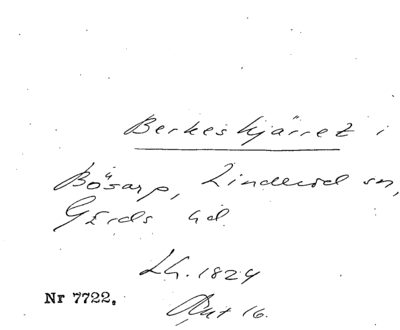 Berkeskjärret i
Bösarp, Linderöd sn,
Gärds hd.
LG. 1824
Nr 7722.
Akt 16.